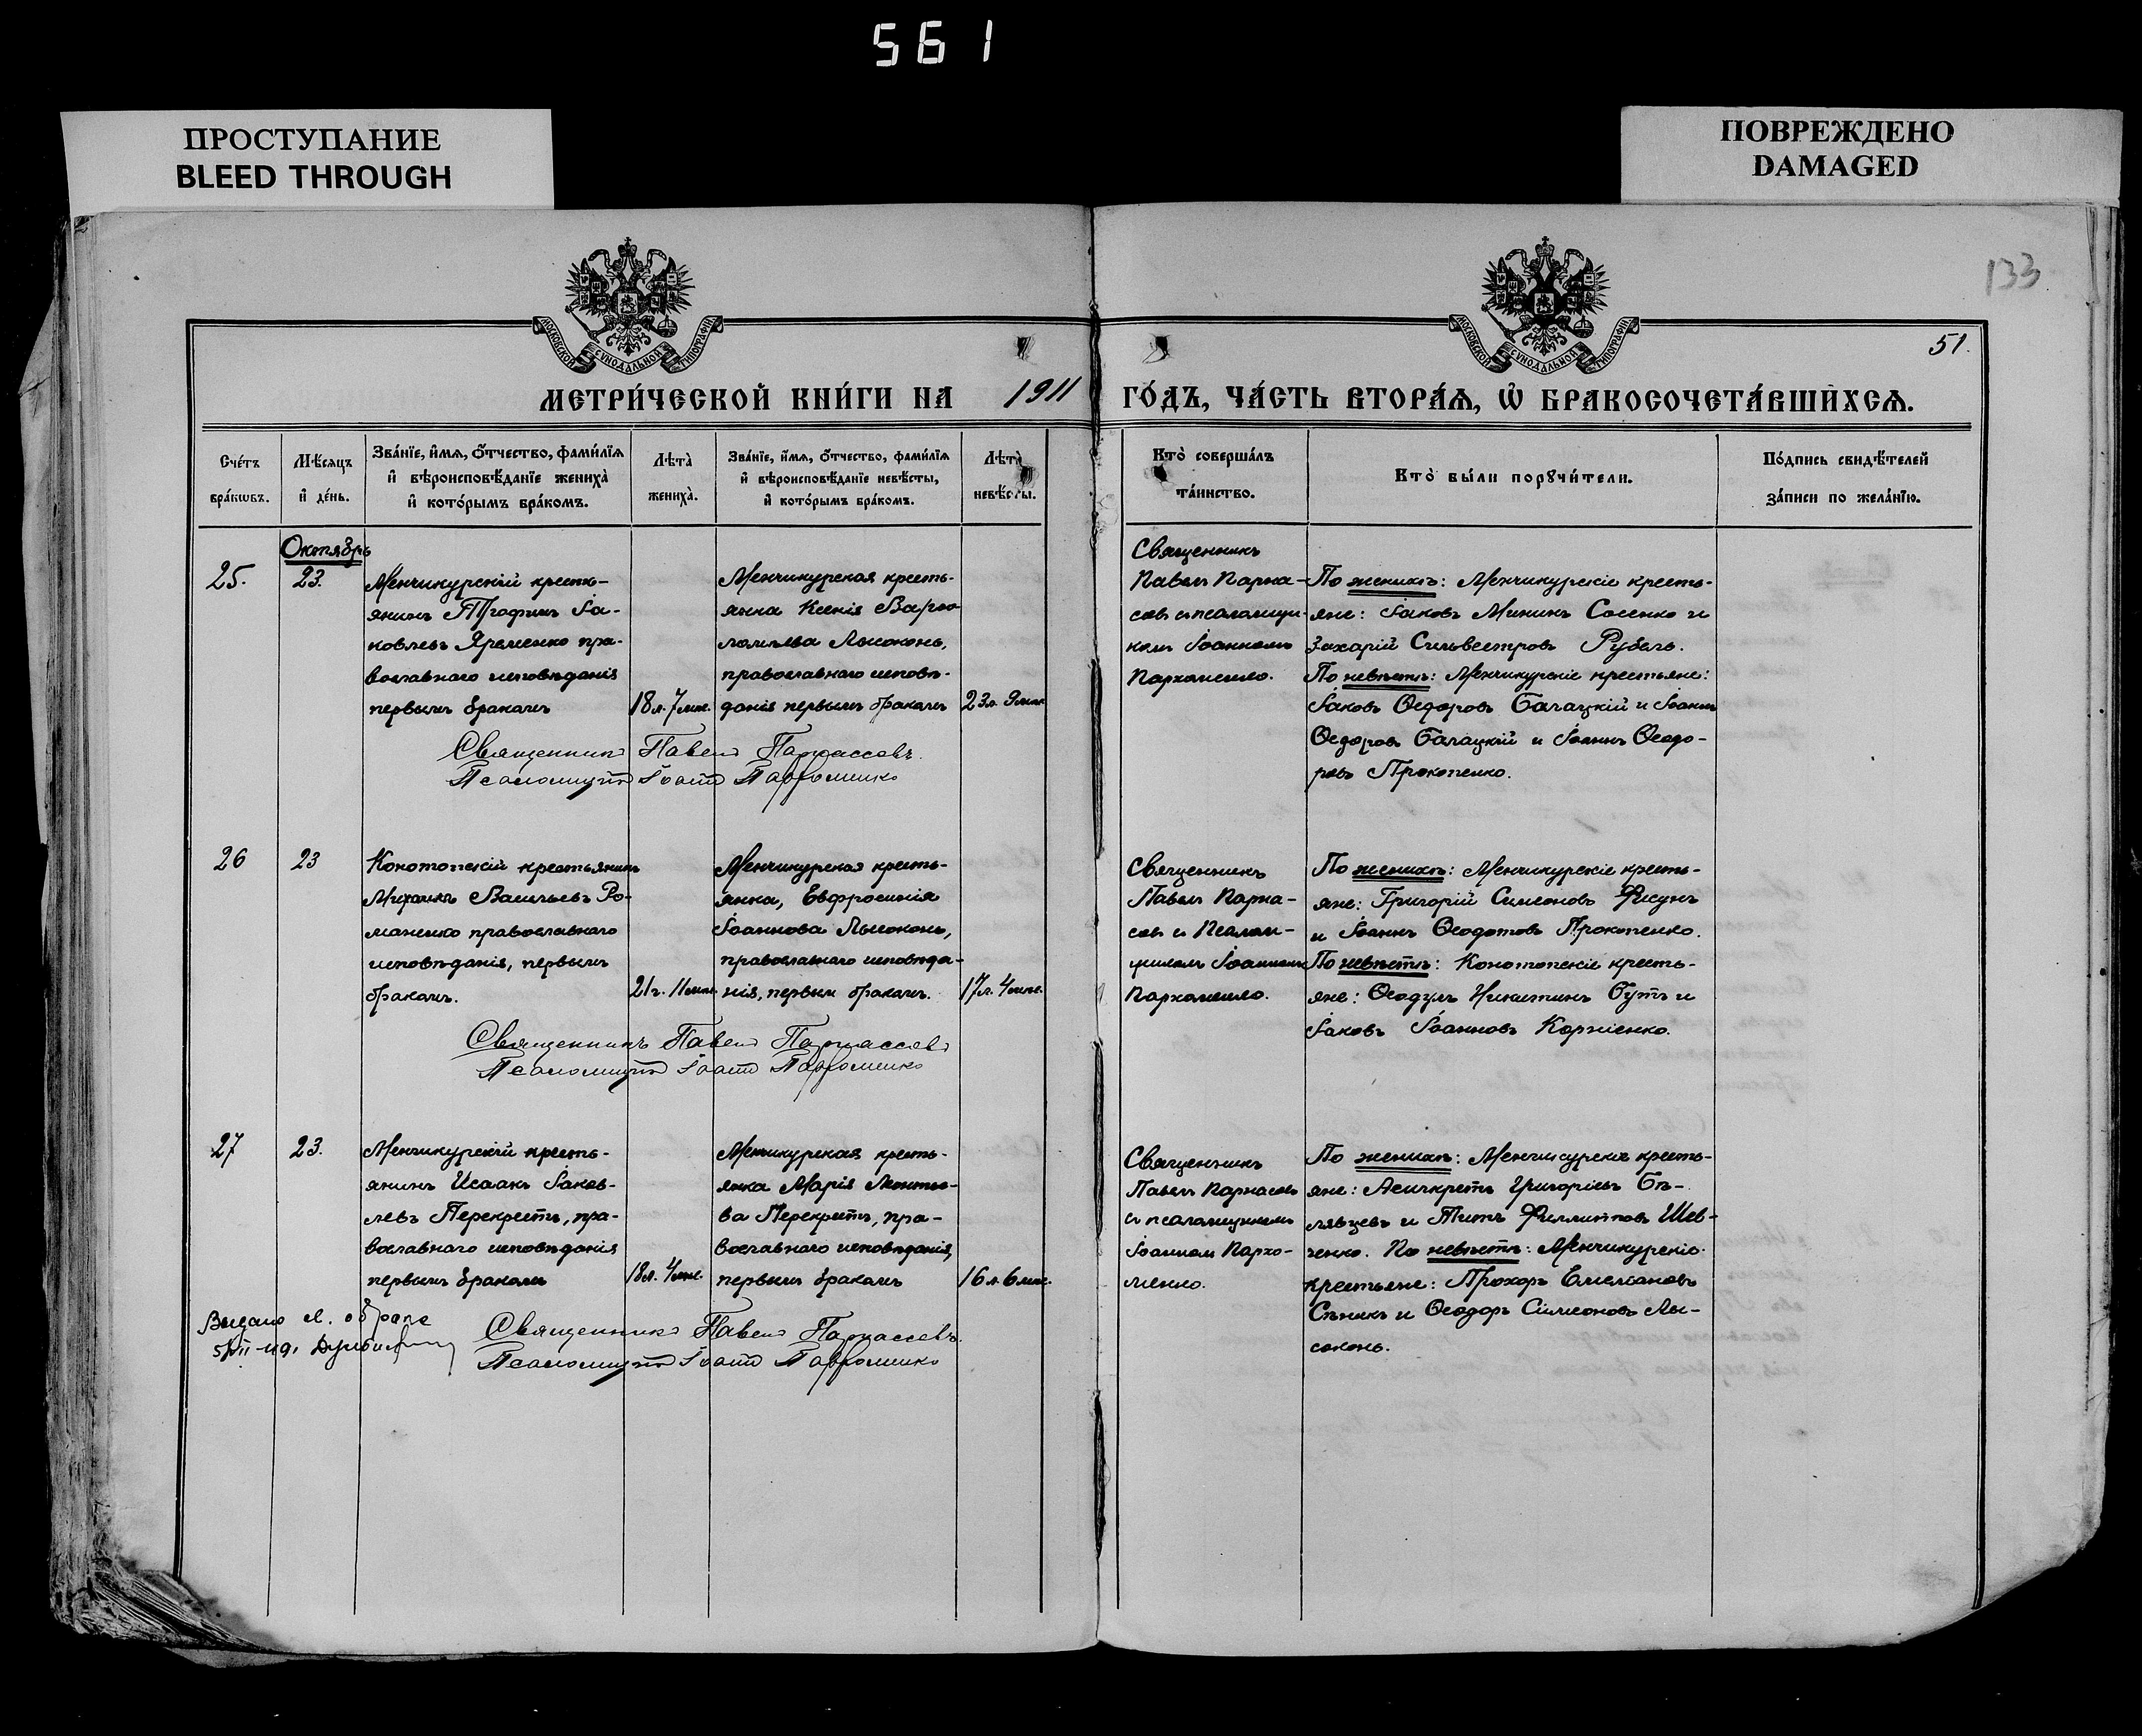 561
ПРОСТУПАНИЕ
BLEED THROUGH
ПОВРЕЖДЕНО
DAMAGED
133
МОСКОВСКОЙ СѴНОДАЛЬНОЙ ТИПОГРАФІИ
МОСКОВСКОЙ СѴНОДАЛЬНОЙ ТИПОГРАФІИ
51.
МЕТРИ́ЧЕСКОЙ КНИ́ГИ НА 1911 ГО́ДЪ, ЧА́СТЬ ВТОРА́Ѧ, Ѡ БРАКОСОЧЕТА́ВШИХСѦ.
Сче́тъ
бра́кѡвъ.
Мѣ́сѧцъ
и҆ де́нь.
Зва́нїе, и҆́мѧ, ѻ҆́тчество, фами́лїѧ
и҆ вѣроисповѣ́данїе жениха̀
и҆ кото́рымъ бра́комъ.
Лѣта̀
жениха̀.
Зва́нїе, и҆́мѧ, ѻ҆́тчество, фами́лїѧ
и҆ вѣроисповѣ́данїе невѣ́сты,
и҆ кото́рымъ бра́комъ.
Лѣта̀
невѣ́сты.
Кто̀ соверша́лъ
та́инство.
Кто̀ бы́ли порꙋчи́тели.
По́дпись свидѣ́телей
за́писи по жела́нїю.
Октябрь
25.
23.
Менчикурскій кресть-
янинъ Трофимъ Іа-
ковлевъ Яременко пра-
вославнаго исповѣданія
первымъ бракомъ
18 л. 7 мѣс.
Менчикурская кресть-
янка Ксенія Варѳо
ломѣева Лысоконь,
православнаго исповѣ-
данія первымъ бракомъ
23 л. 9 мѣс.
Священникъ
Павелъ Парна-
совъ и псаломщи-
комъ Іоанномъ
Пархоменко.
По женихѣ: Менчикурскіе кресть-
яне: Іаковъ Мининъ Сосенко и
Захарій Сильвестровъ Рубель.
По невѣстѣ: Менчикурскіе крестьяне:
Іаковъ Ѳедоровъ Балацкій и Іоаннъ
Ѳедоровъ Балацкій и Іоаннъ Ѳеодо-
ровъ Прокопенко.
Священникъ Павелъ Парнассовъ.
Псаломщикъ Іоаннъ Пархоменко
26
23
Конотопскій крестьянинъ
Михаилъ Васильевъ Ро-
маненко православнаго
исповѣданія, первымъ
бракомъ.
21 г. 11 мѣс.
Менчикурская кресть-
янка, Евфросинія
Іоаннова Лысоконь,
православнаго исповѣда-
нія, первым бракомъ.
17 л. 4 мѣс.
Священникъ
Павелъ Парна-
совъ и Псалом-
щикомъ Іоанномъ
Пархоменко.
По женихѣ: Менчикурскіе кресть-
яне: Григорій Симеоновъ Фисунъ
и Іоаннъ Ѳеодотовъ Прокопенко.
По невѣстѣ: Конотопскіе кресть-
яне: Ѳеодулъ Никитинъ Бутъ и
Іаковъ Іоанновъ Корніенко.
Священникъ Павелъ Парнассовъ
Псаломщикъ Іоаннъ Пархоменко
27
23.
Менчикурскій кресть-
янинъ Исаакъ Іаков-
левъ Перекрестъ, пра-
вославнаго исповѣданія
первымъ бракомъ
18 л. 4 мѣс.
Менчикурская кресть-
янка Марія Леонтье-
ва Перекрестъ, пра-
вославнаго исповѣданія,
первымъ бракомъ
16 л. 6 мѣс.
Священникъ
Павелъ Парнасовъ
и псаломщикомъ
Іоанном Пархо-
менко.
По женихѣ: Менчикурскіе кресть-
яне: Асигкретъ Григорьевъ Бѣ-
лявцевъ и Титъ Филипповъ Шев-
ченко. По невѣстѣ: Менчикурскіе
крестьяне: Прохоръ Емельяновъ
Сѣникъ и Ѳеодоръ Симеоновъ Лы-
соконь.
Выдано
Священникъ Павелъ Парнассовъ.
Псаломщикъ Іоаннъ Пархоменко